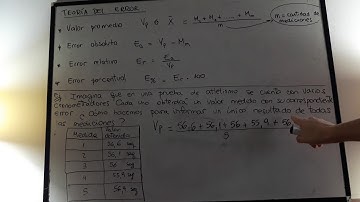 TEORÍA DEL ERROR
• Valor promedio Vp o X̄ = M₁ + M₂ + ... + Mm
m
m = cantidad de mediciones
• Error absoluto Ea = Vp - Mm
• Error relativo Er = Ea
Vp
• Error porcentual E% = Er · 100
Ej Imagina que en una prueba de atletismo se cuenta con varios
cronometradores. Cada uno obtendrá un valor medido con su correspondiente
error. ¿Cómo hacemos para informar un único resultado de todas
las mediciones?
Medida Valor obtenido
1 56,6 seg
2 56,1 seg
3 56 seg
4 55,9 seg
5 56,4 seg
Vp = 56,6 + 56,1 + 56 + 55,9 + 56
5